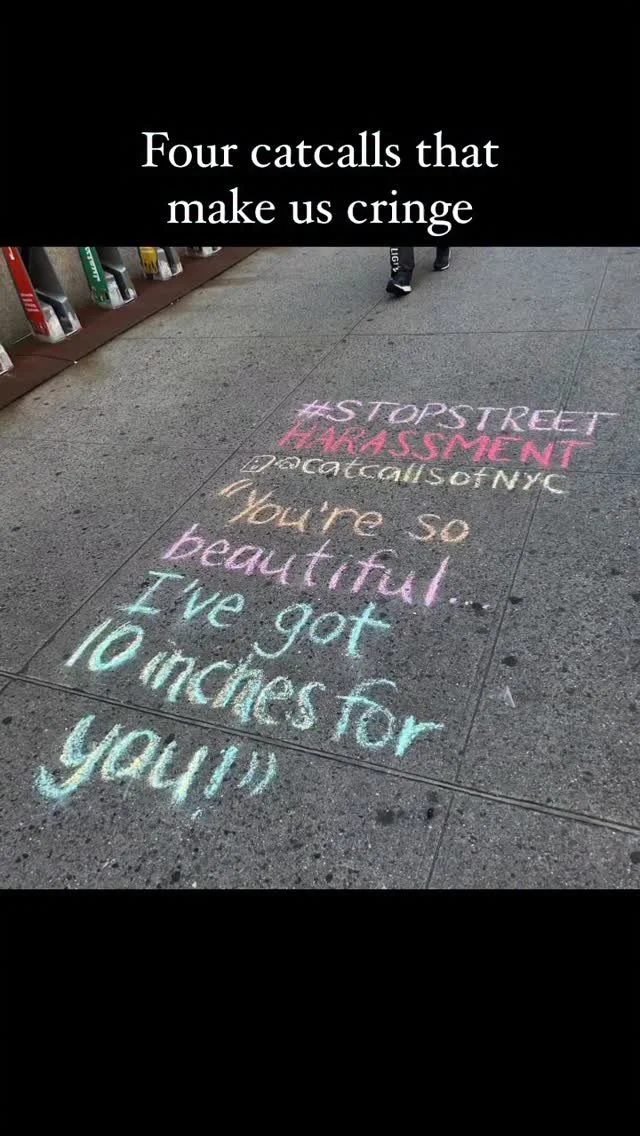 Four catcalls that
make us cringe
#STOPSTREET
HARASSMENT
@catcallsofNYC
"You're so
beautiful...
I've got
10 inches for
you!"